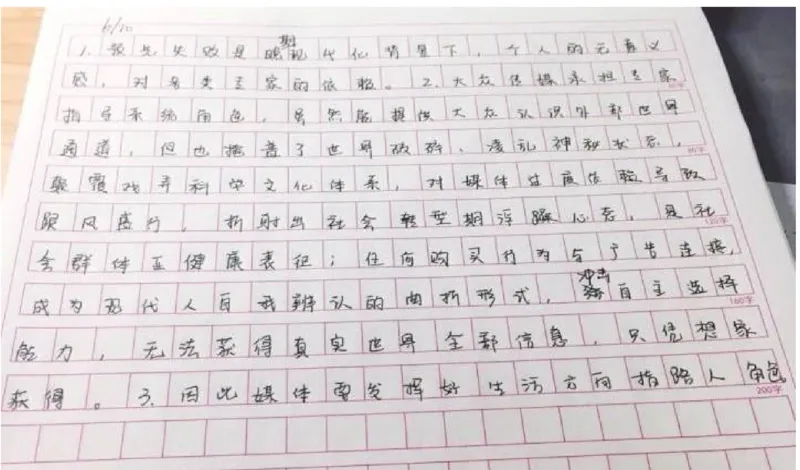 6/10
1. 领先失败是晚期现代化背景下,个人的无意义
感,对各类专家的依赖。2.大众传媒承担专家
指导系统角色,虽然能提供大众认识外部世界
通道,但也掩盖了世界破碎、凌乱神秘状态,
戏弄科学文化体系,对媒体过度依赖导致
跟风盛行,折射出社会转型期浮躁心态,是社
会群体亚健康表征;任何购买行为与广告连接,
成为现代人自我辨认的曲折形式,冲击自主选择
能力,无法获得真实世界全部信息,只凭想象
获得。3.因此媒体要发挥好生活方向指路人角色
60字
80字
120字
160字
200字